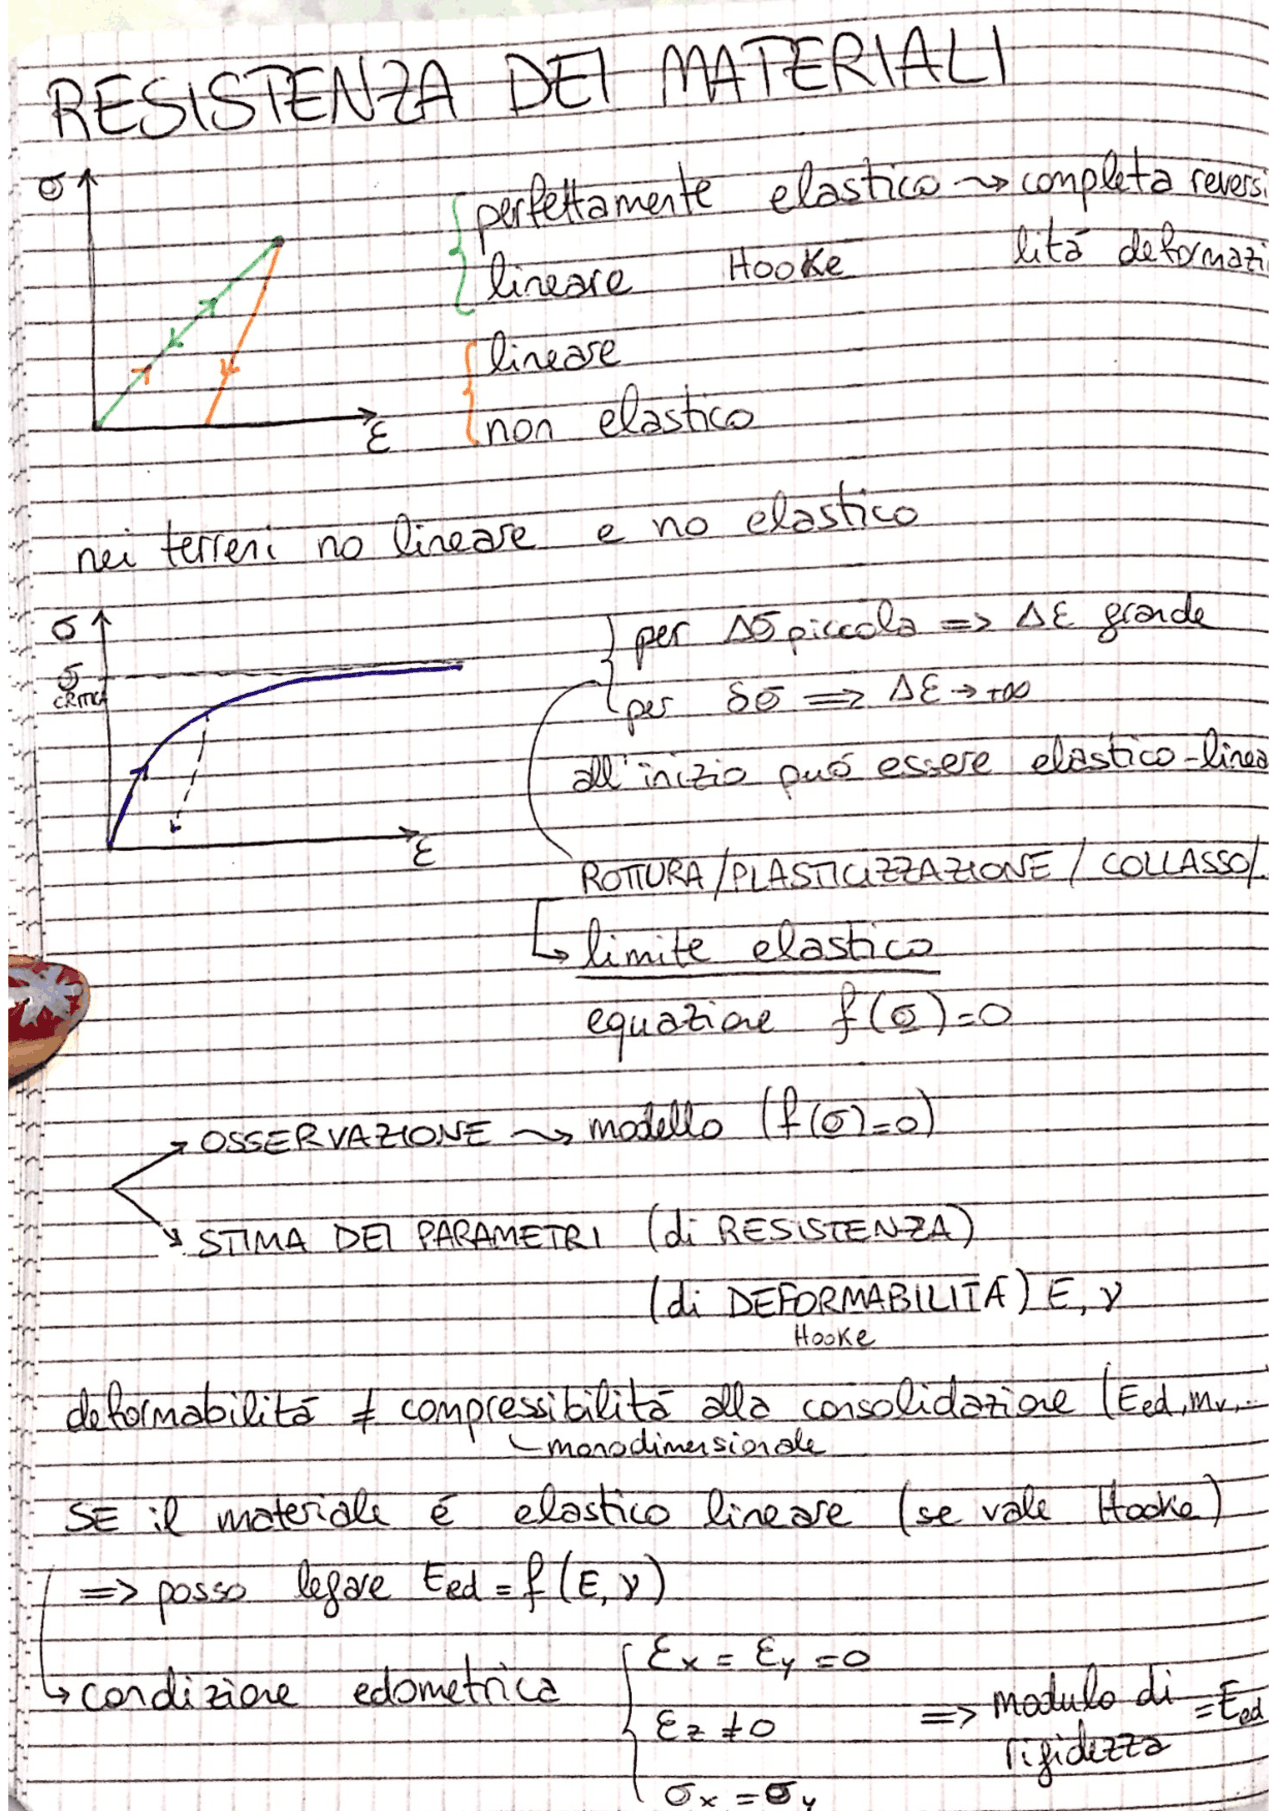 RESISTENZA DEI MATERIALI
σ
perfettamente elastico → completa reversi
lineare Hooke lità deformazi
lineare
non elastico
ε
nei terreni no lineare e no elastico
σ
σ CRITICA
per Δσ piccola => Δε grande
per δσ => Δε → +∞
all'inizio può essere elastico-linea
ε
ROTTURA/PLASTICIZZAZIONE / COLLASSO/
limite elastico
equazione f(σ)=0
OSSERVAZIONE → modello (f(σ)=0)
STIMA DEI PARAMETRI (di RESISTENZA)
(di DEFORMABILITÀ) E, ν
Hooke
deformabilità ≠ compressibilità alla consolidazione (Eed, mv,...
monodimensionale
SE il materiale é elastico lineare (se vale Hooke)
=> posso legare Eed = f(E, ν)
condizione edometrica
εx = εy = 0
εz ≠ 0
σx = σy
=> modulo di rigidezza = Eed